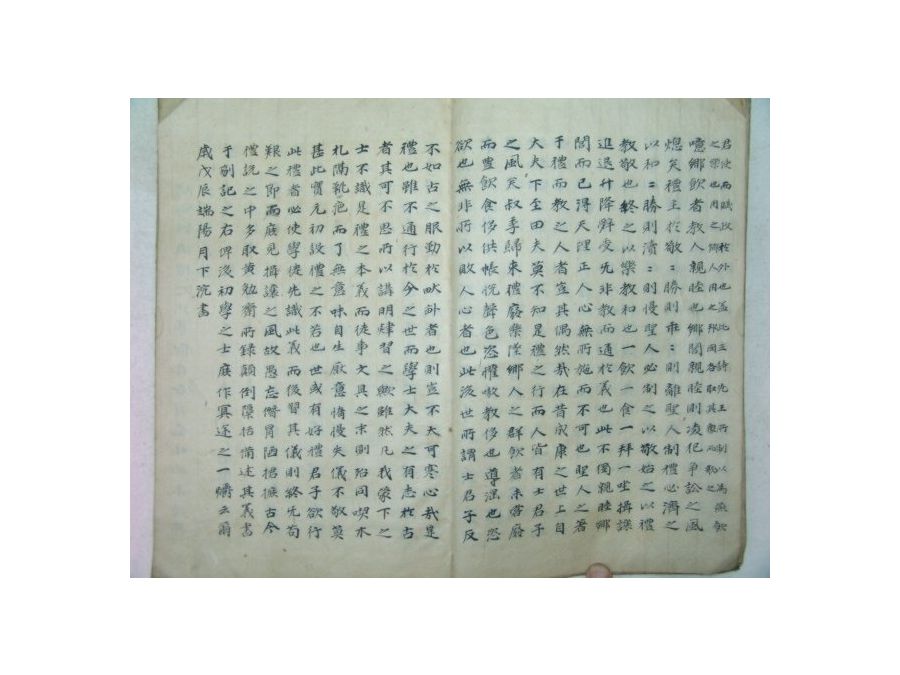 君使而賦政於外也蓋此三詩先王所制以爲燕飲
之樂也用之鄉人用之邦國各取其象而歌之
噫鄉飲者教人親睦也鄉閭親睦則凌犯爭訟之風
熄矣禮主於敬〻勝則乖〻則離聖人制禮必濟之
以和〻勝則瀆〻則慢聖人必制之以敬始之以禮
教敬也終之以樂教和也一飲一食一拜一坐揖讓
進退升降辭受先非教而通於義也此不獨親睦鄉
閭而已得天理正人心無所施而不可也聖人之著
于禮而教之人者豈其偶然哉在昔成康之世上自
大夫下至田夫莫不知是禮之行而人皆有士君子
之風矣叔季歸來禮廢樂墜鄉人之群飲者未嘗廢
而豊飲食侈供帳悅聲色恣懽娛教侈也導淫也恣
欲也無非所以敗人心者也此後世所謂士君子反
不如古之服勤於畎畝者也則豈不大可寒心哉是
禮也雖不通行於今之世而學士大夫之有志於古
者其可不思所以講明肄習之歟雖然凡我蒙下之
士不識是禮之本義而徒事文具之末則殆同喫木
札隔靴疤而了無意味自生厭意惰慢失儀不敬莫
甚此實先初設禮之不若也世或有好禮君子欲行
此禮者必使學徒先識此義而後習其儀則終先苟
艱之節而庶見揖讓之風故愚忘僭冒陋捃摭古今
禮說之中多取黃勉齋所錄顛倒檃括備述其義書
于別記之右俾後初學之士庶作冥途之一燭云爾
歲戊辰端陽月下浣書